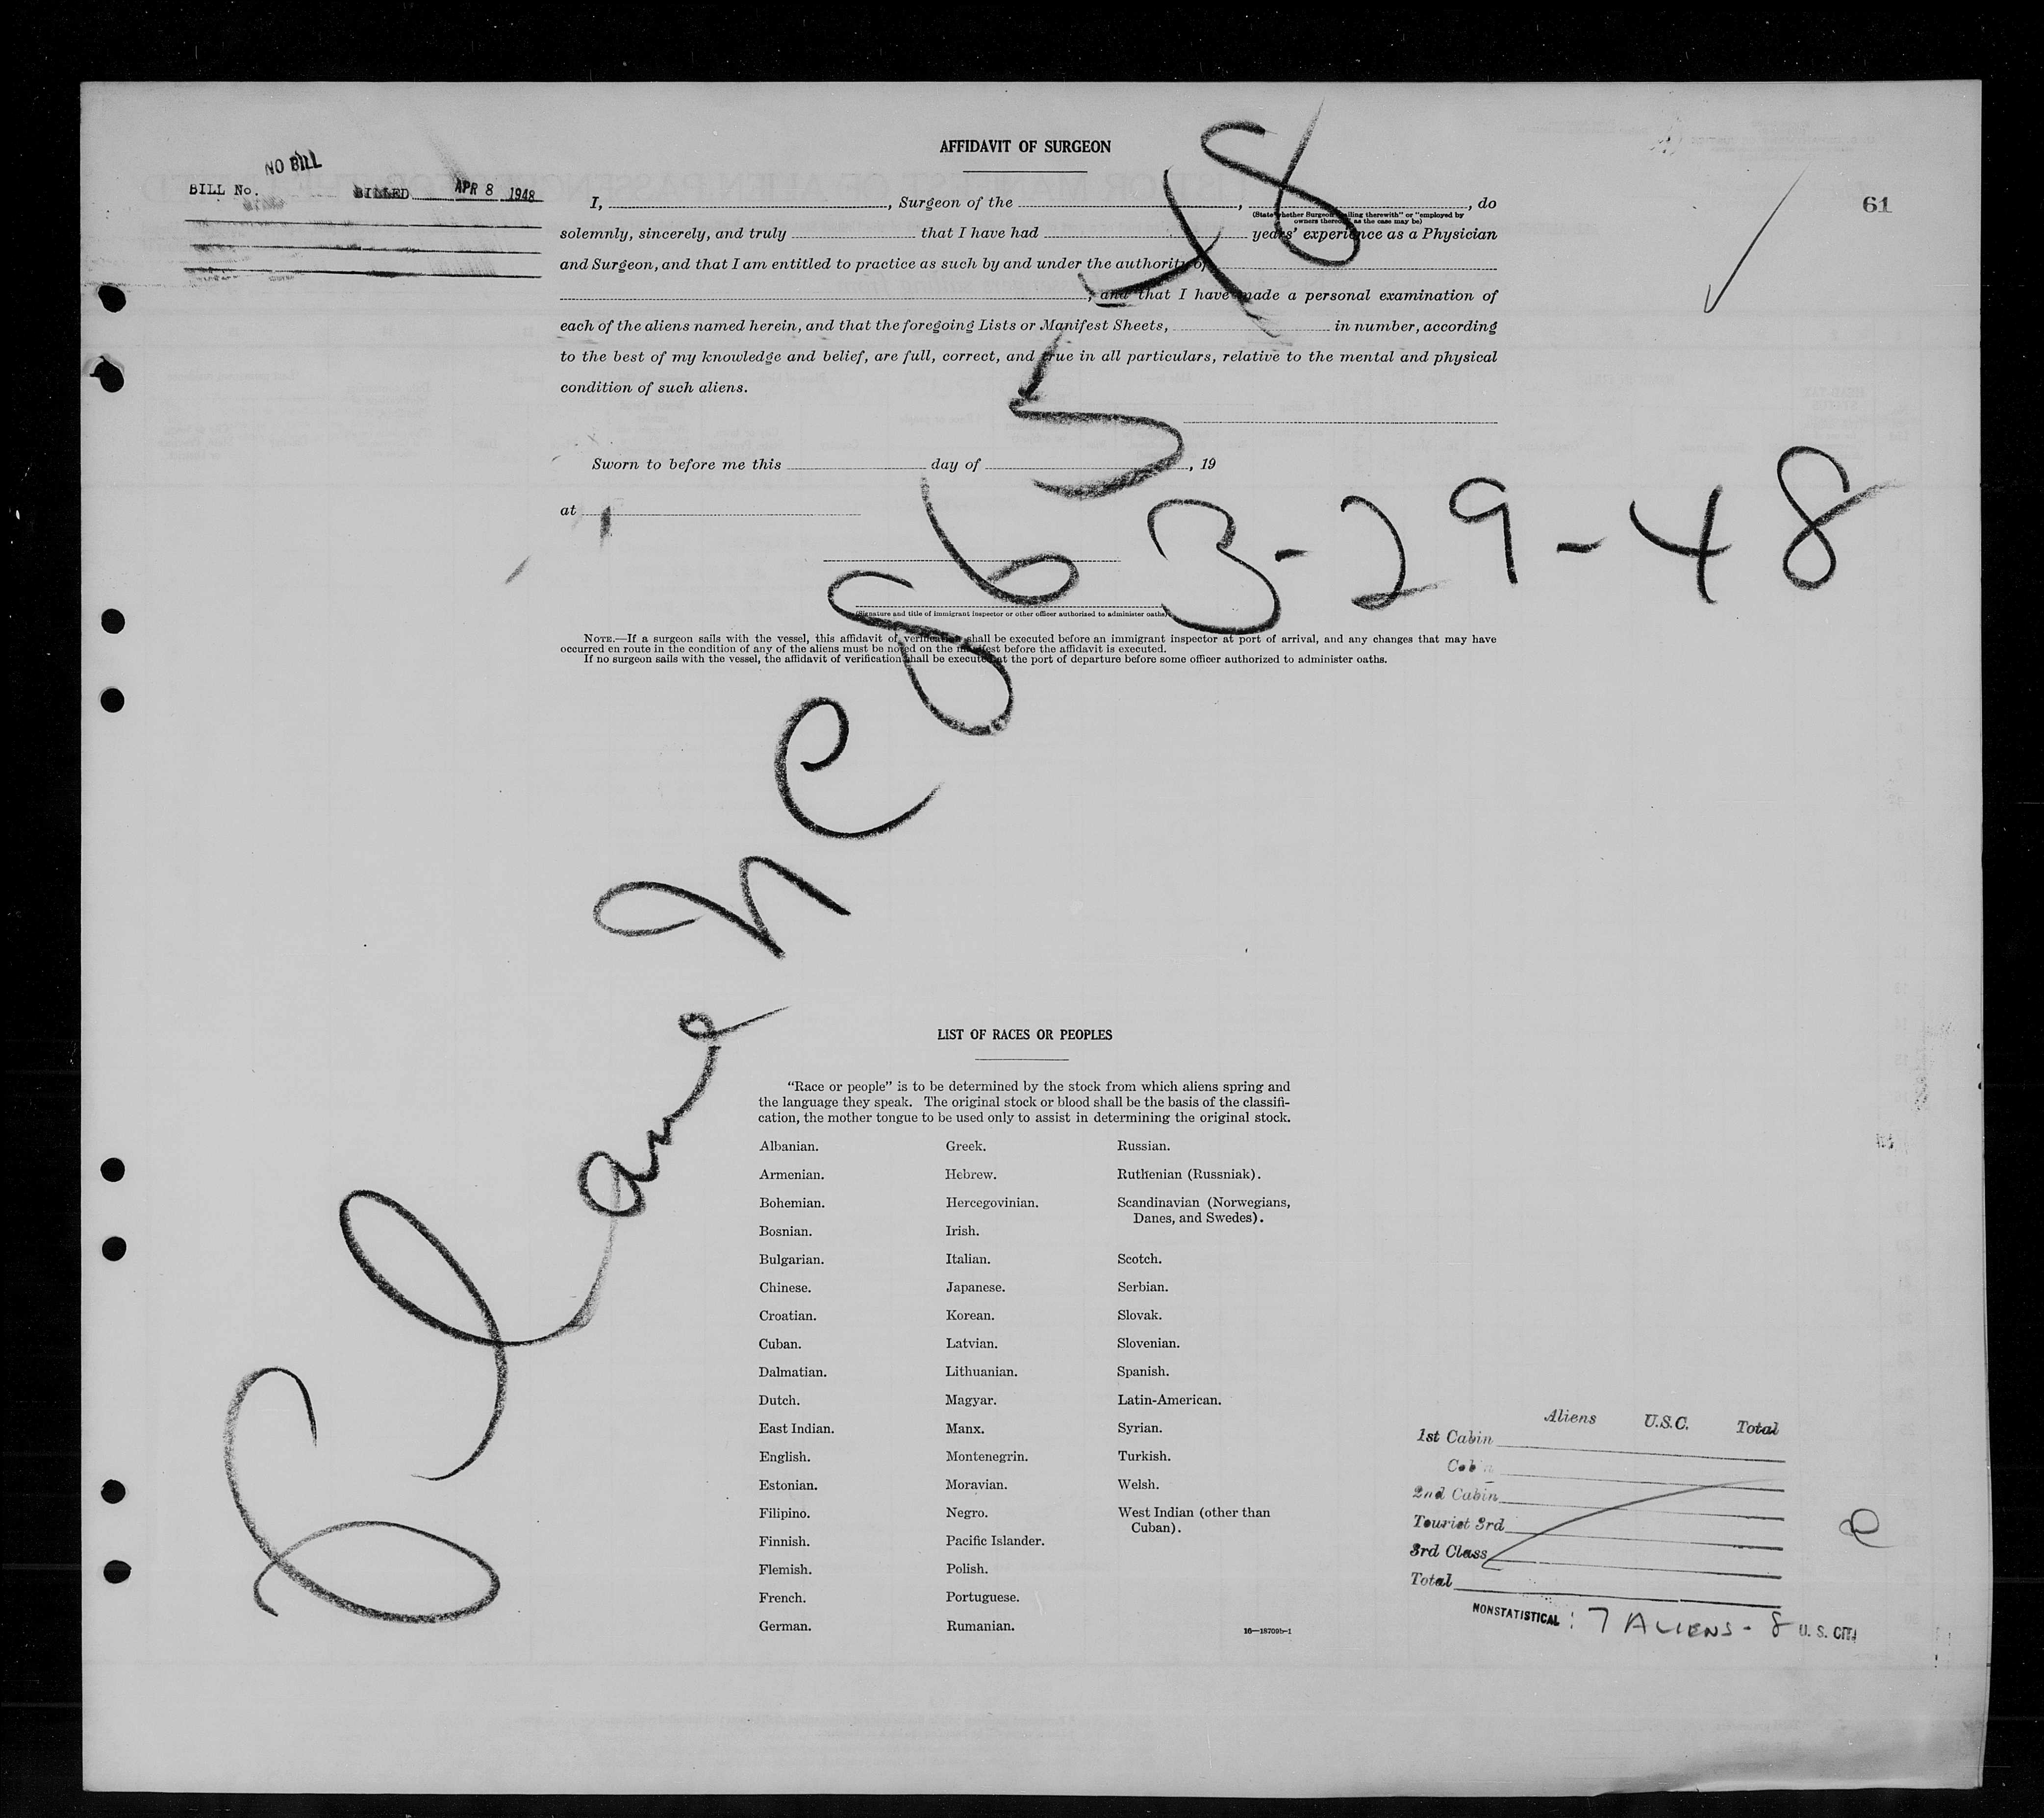 AFFIDAVIT OF SURGEON
NO BILL
BILL No. BILLED APR 8 1948
61
I, , Surgeon of the , , do
(State whether Surgeon sailing therewith" or "employed by
owners thereof," as the case may be)
solemnly, sincerely, and truly that I have had years' experience as a Physician
and Surgeon, and that I am entitled to practice as such by and under the authority of
, and that I have made a personal examination of
each of the aliens named herein, and that the foregoing Lists or Manifest Sheets, in number, according
to the best of my knowledge and belief, are full, correct, and true in all particulars, relative to the mental and physical
condition of such aliens.
Sworn to before me this day of , 19
at
3-29-48
(Signature and title of immigrant inspector or other officer authorized to administer oaths)
NOTE.—If a surgeon sails with the vessel, this affidavit of verification shall be executed before an immigrant inspector at port of arrival, and any changes that may have
occurred en route in the condition of any of the aliens must be noted on the manifest before the affidavit is executed.
If no surgeon sails with the vessel, the affidavit of verification shall be executed at the port of departure before some officer authorized to administer oaths.
NC 86548
LIST OF RACES OR PEOPLES
"Race or people" is to be determined by the stock from which aliens spring and
the language they speak. The original stock or blood shall be the basis of the classifi-
cation, the mother tongue to be used only to assist in determining the original stock.
Albanian.
Armenian.
Bohemian.
Bosnian.
Bulgarian.
Chinese.
Croatian.
Cuban.
Dalmatian.
Dutch.
East Indian.
English.
Estonian.
Filipino.
Finnish.
Flemish.
French.
German.
Greek.
Hebrew.
Hercegovinian.
Irish.
Italian.
Japanese.
Korean.
Latvian.
Lithuanian.
Magyar.
Manx.
Montenegrin.
Moravian.
Negro.
Pacific Islander.
Polish.
Portuguese.
Rumanian.
Russian.
Ruthenian (Russniak).
Scandinavian (Norwegians,
Danes, and Swedes).
Scotch.
Serbian.
Slovak.
Slovenian.
Spanish.
Latin-American.
Syrian.
Turkish.
Welsh.
West Indian (other than
Cuban).
16—18709b-1
Aliens U.S.C. Total
1st Cabin
Cabin
2nd Cabin
Tourist 3rd
3rd Class
Total
NONSTATISTICAL : 7 ALIENS - 8 U. S. CIT